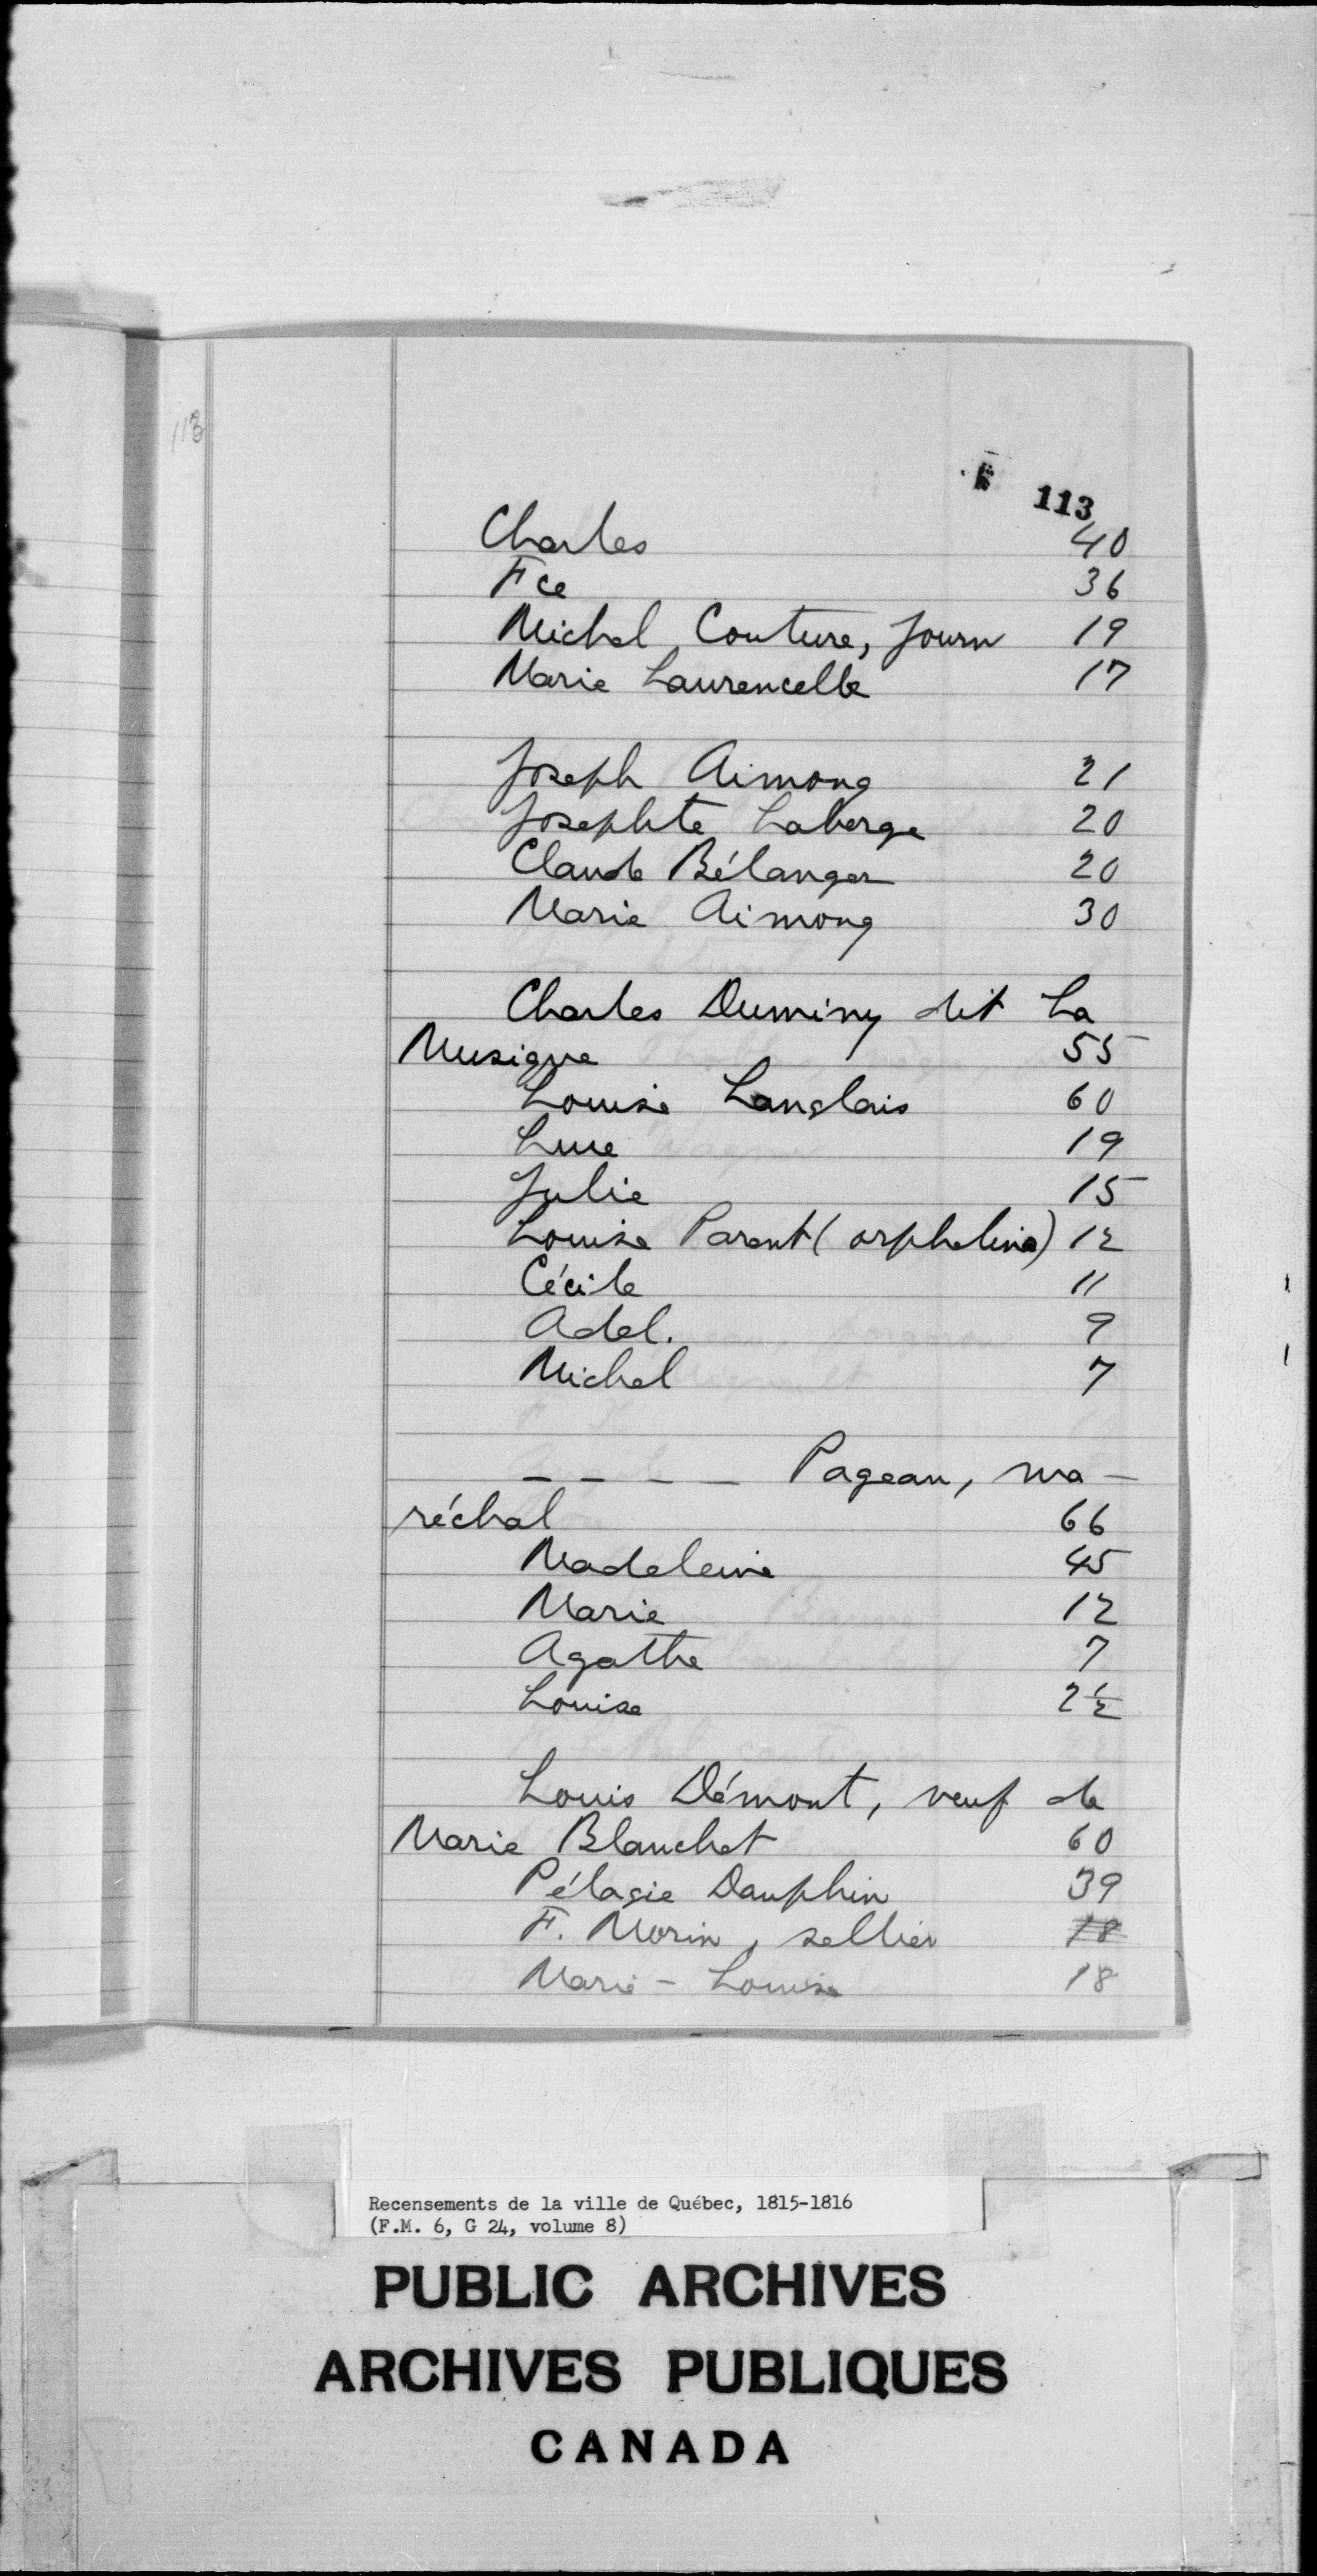 113
113
Charles 40
Fce 36
Michel Couture, Journ 19
Marie Laurencelle 17
Joseph Aimong 21
Josephte Laberge 20
Claude Bélanger 20
Marie Aimong 30
Charles Duminy dit La
Musique 55
Louise Langlais 60
Luce 19
Julie 15
Louise Parent (orpheline) 12
Cécile 11
Adel. 9
Michel 7
- - - - Pageau, ma-
réchal 66
Madeleine 45
Marie 12
Agathe 7
Louise 2½
Louis Démont, veuf de
Marie Blanchet 60
Pélagie Dauphin 39
F. Morin, sellier 18
Marie-Louise 18
Recensements de la ville de Québec, 1815-1816
(F.M. 6, G 24, volume 8)
PUBLIC ARCHIVES
ARCHIVES PUBLIQUES
CANADA